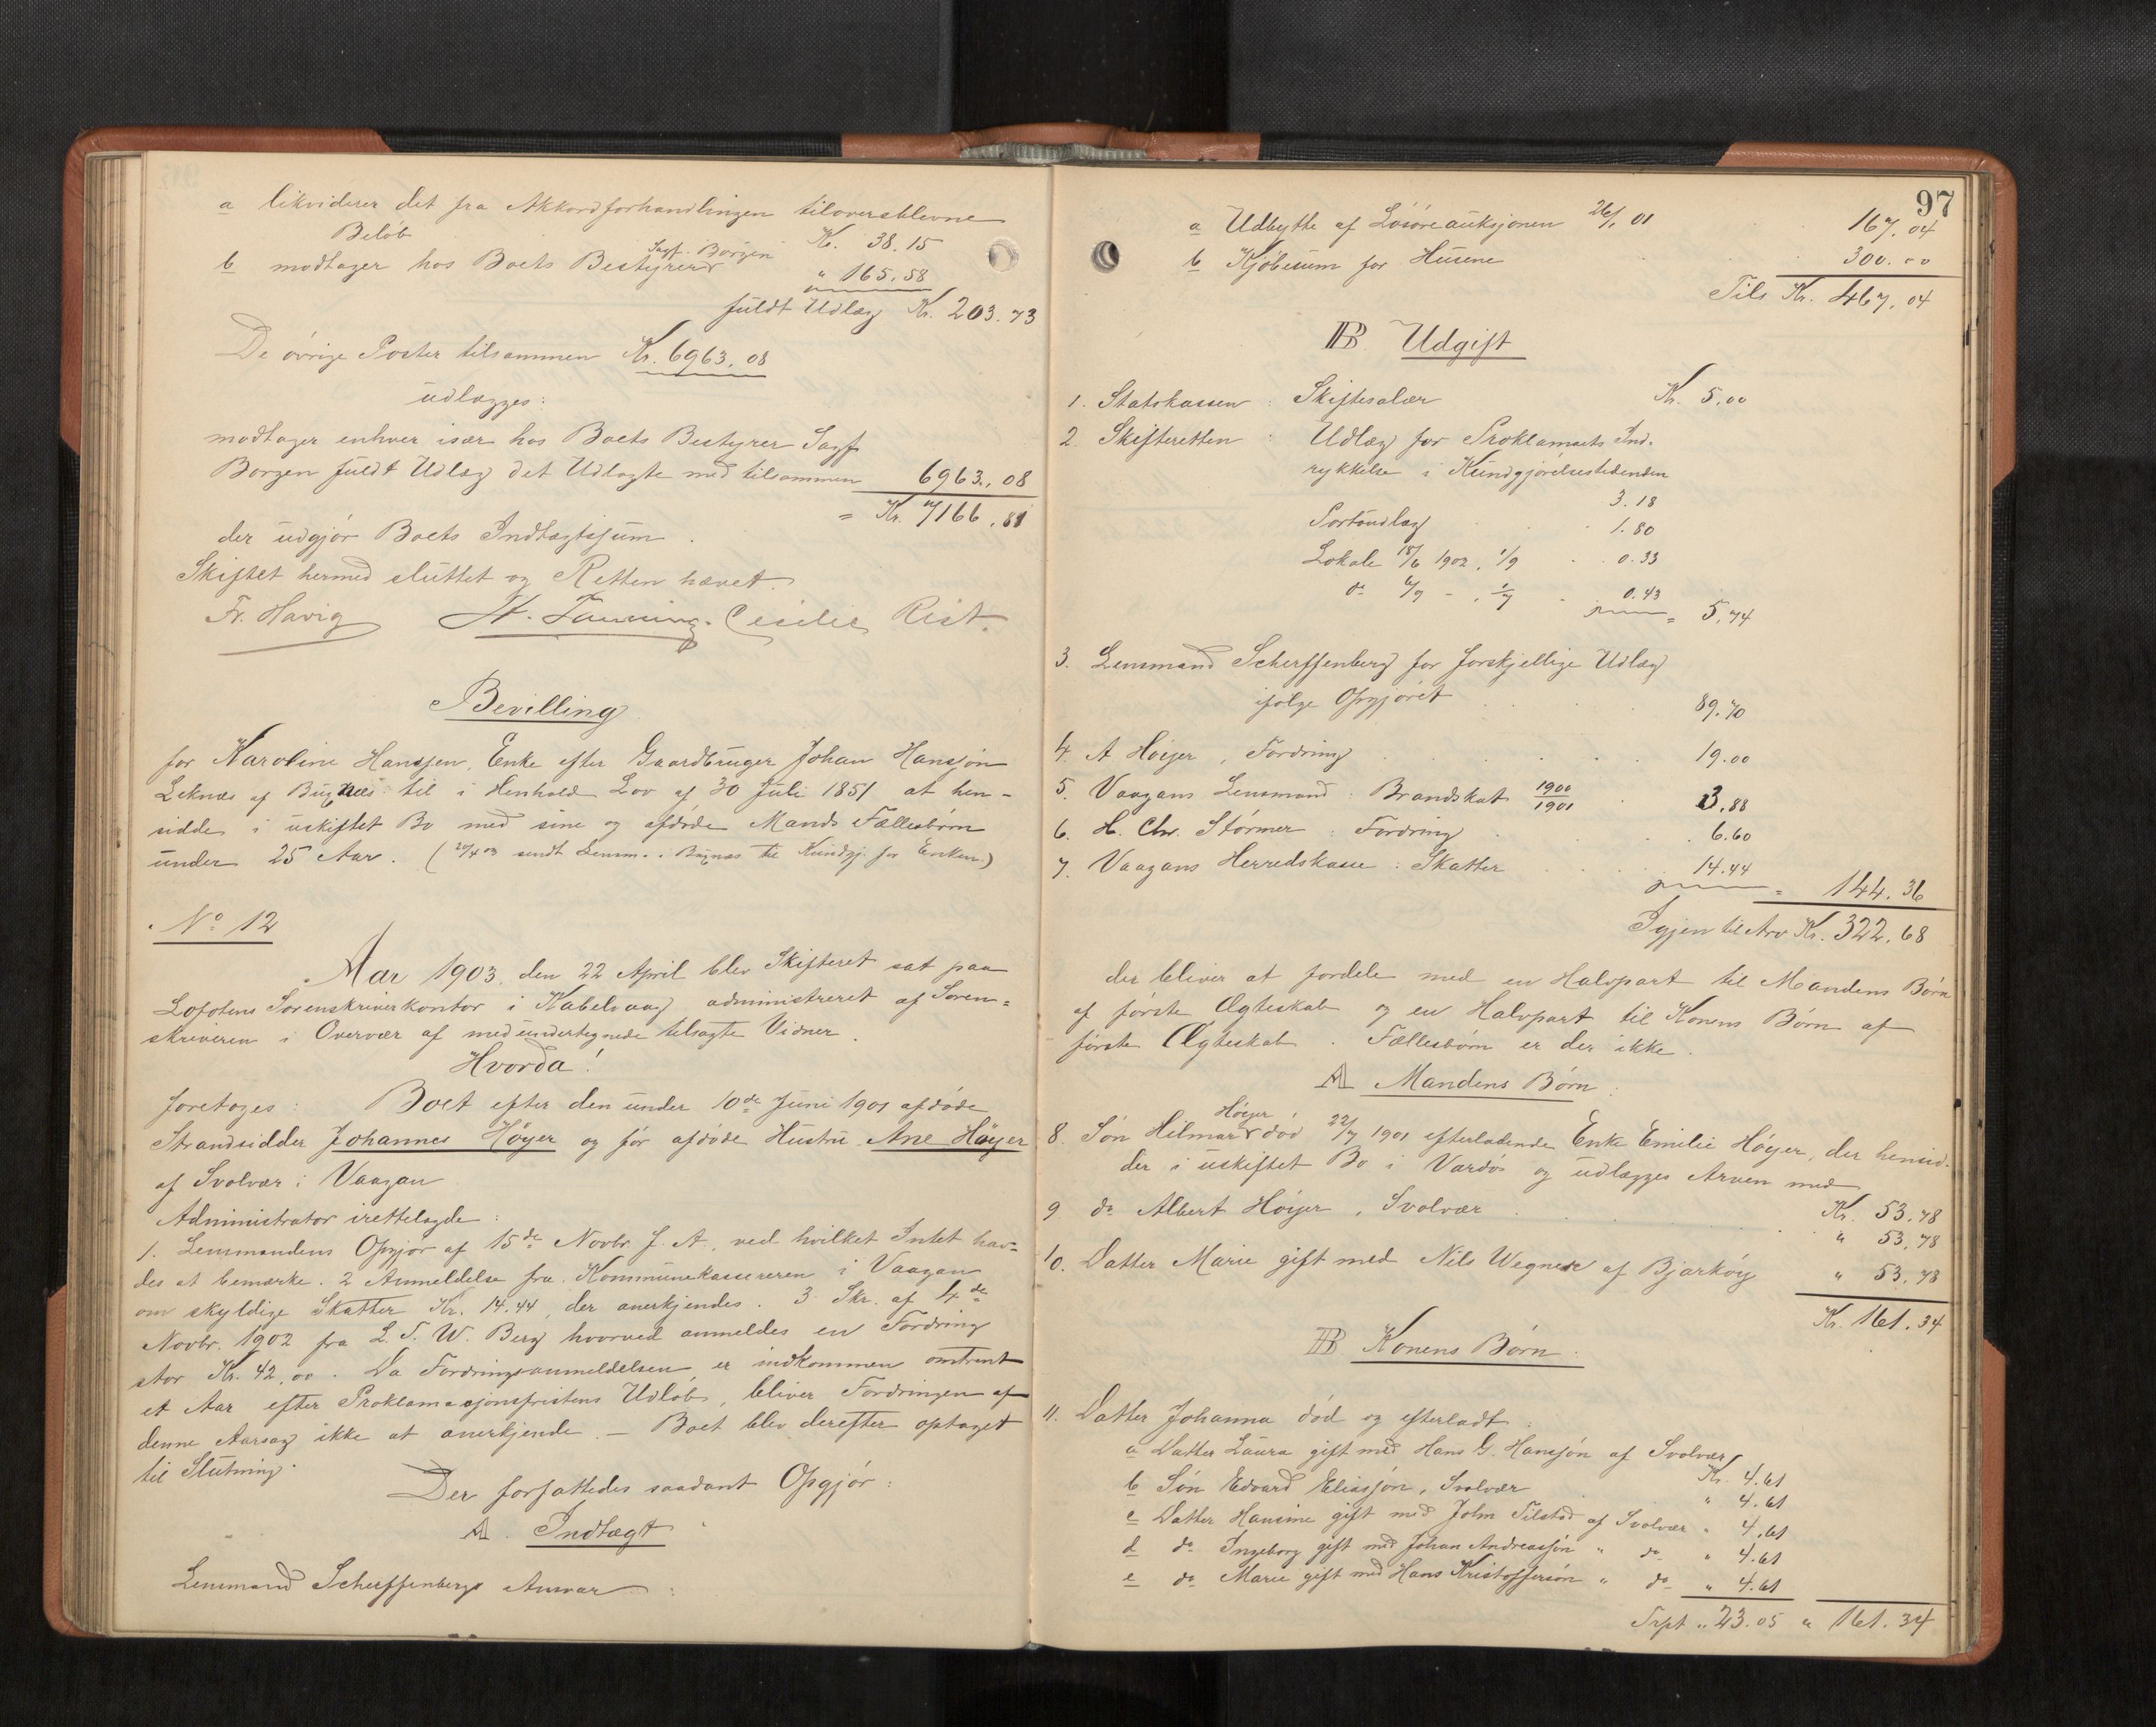 a likviderer det fra Akkordforhandlingen tiloversblevne
Beløb Kr. 38.15
b modtager hos Boets Bestyrer Sagf. Borgen " 165.58
fuldt Udlæg Kr. 203.73
De øvrige Poster tilsammen Kr. 6963.08
udlægges:
modtager enhver især hos Boets Bestyrer Sagf
Borgen fuldt Udlæg det Udlagte med tilsammen 6963.08
= Kr. 7166.81
der udgjør Boets Indtægtssum.
Skiftet hermed sluttet og Retten hævet.
Fr. Havig Cecilie Rist.
Bevilling
for Karoline Hanssen, Enke efter Gaardbruger Johan Hanssøn
Leknæs af Buxnæs til i Henhold Lov af 30 Juli 1851 at hen-
sidde i uskiftet Bo med sine og afdøde Mands Fællesbørn
under 25 Aar. (20/4 03 sendt Lensm. i Buxnæs til Kundgj. for Enken.)
No 12
Aar 1903, den 22 April blev Skifteret sat paa
Lofotens Sorenskriverkontor i Kabelvaag administreret af Soren=
skriveren i Overvær af medundertegnede tilsagte Vidner.
Hvorda!
foretoges: Boet efter den under 10de Juni 1901 afdøde
Strandsidder Johannes Høyer og før afdøde Hustru Ane Høyer
af Svolvær i Vaagan
Administrator irettelagde:
1. Lensmandens Opgjør af 15de Novbr. f. A., ved hvilket Intet hav=
des at bemærke. 2 Anmeldelse fra Kommunekassereren i Vaagan
om skyldige Skatter Kr. 14.44, der anerkjendes. 3 Skr. af 4de
Novbr. 1902 fra L. T. W. Berg hvorved anmeldes en Fordring
stor Kr. 42,00. Da Fordringsanmeldelsen er indkommen omtrent
et Aar efter Proklamasjonsfristens Udløb, bliver Fordringen af
denne Aarsag ikke at anerkjende. — Boet blev derefter optaget
til Slutning.
Der forfattedes saadant Opgjør:
A. Indtægt
Lensmand Scherffenbergs Ansvar:
97
a Udbytte af Løsøreauksjonen 26/1 01 167.04
b Kjøbesum for Husene 300.00
Tils Kr. 467.04
B Udgift
1. Statskassen: Skiftesalær Kr. 5.00
2. Skifteretten: Udlæg for Proklamaets Ind-
rykkelse i Kundgjørelsestidenden
3.18
Portoudlæg 1.80
Lokale 18/6 1902, 1/9 0.33
do 6/9 - , 1/7 0.43
= 5.74
3. Lensmand Scherffenberg for forskjellige Udlæg
ifølge Opgjøret 89.70
4. A Høyer, Fordring 19.00
5. Vaagans Lensmand: Brandskat 1900/1901 3.88
6. H. Chr. Størmer: Fordring 6.60
7. Vaagans Herredskasse: Skatter 14.44
= 144.36
Igjen til Arv Kr. 322.68
der bliver at fordele med en Halvpart til Mandens Børn
af første Ægteskab og en Halvpart til Konens Børn af
første Ægteskab. Fællesbørn er der ikke.
A Mandens Børn:
8. Søn Hilmar Høyer død 22/7 1901 efterladende Enke Emilie Høyer, der hensid-
der i uskiftet Bo i Vardø og udlægges Arven med
Kr. 53.78
9 do Albert Høyer, Svolvær " 53.78
10. Datter Marie gift med Nils Wegner af Bjarkøy " 53.78
Kr. 161.34
B Konens Børn:
11. Datter Johanna død og efterladt:
a Datter Laura gift med Hans G. Hanssøn af Svolvær Kr. 4.61
b Søn Edvard Eliassøn, Svolvær " 4.61
c Datter Hansine gift med John Tilstad af Svolvær " 4.61
d do Ingeborg gift med Johan Andreassøn " do " 4.61
e do Marie gift med Hans Kristoffersøn " do " 4.61
Trpt " 23.05 " 161.34